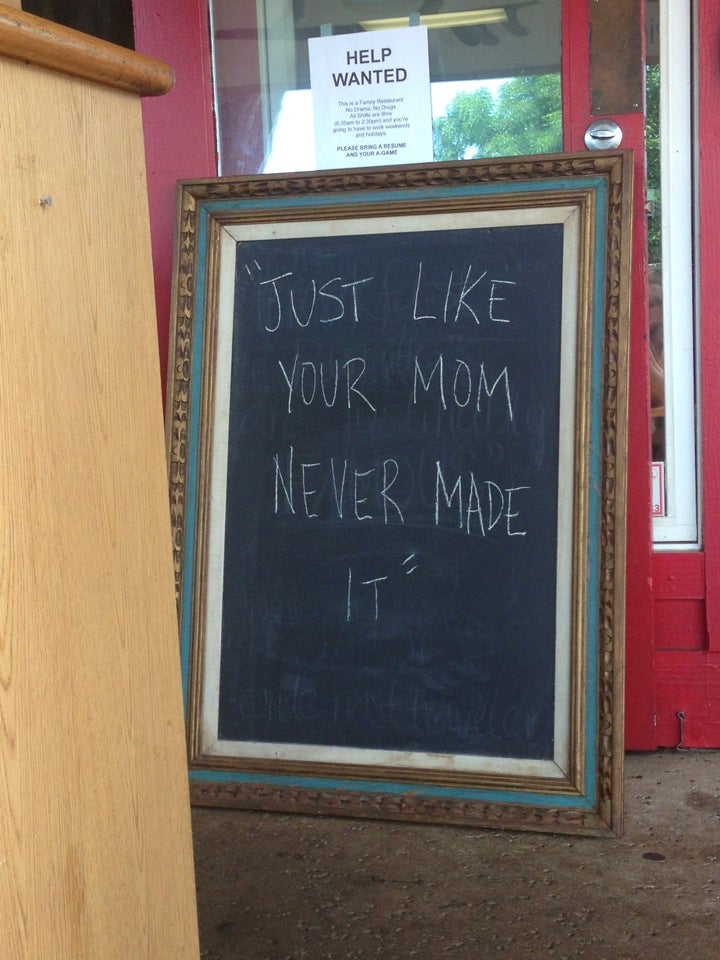 HELP
WANTED
This is a Family Restaurant
No Drama, No Drugs
All Shifts are 8hrs
(6:30am to 2:30pm) and you're
going to have to work weekends
and holidays.
PLEASE BRING A RESUME
AND YOUR A-GAME
"JUST LIKE
YOUR MOM
NEVER MADE
IT"